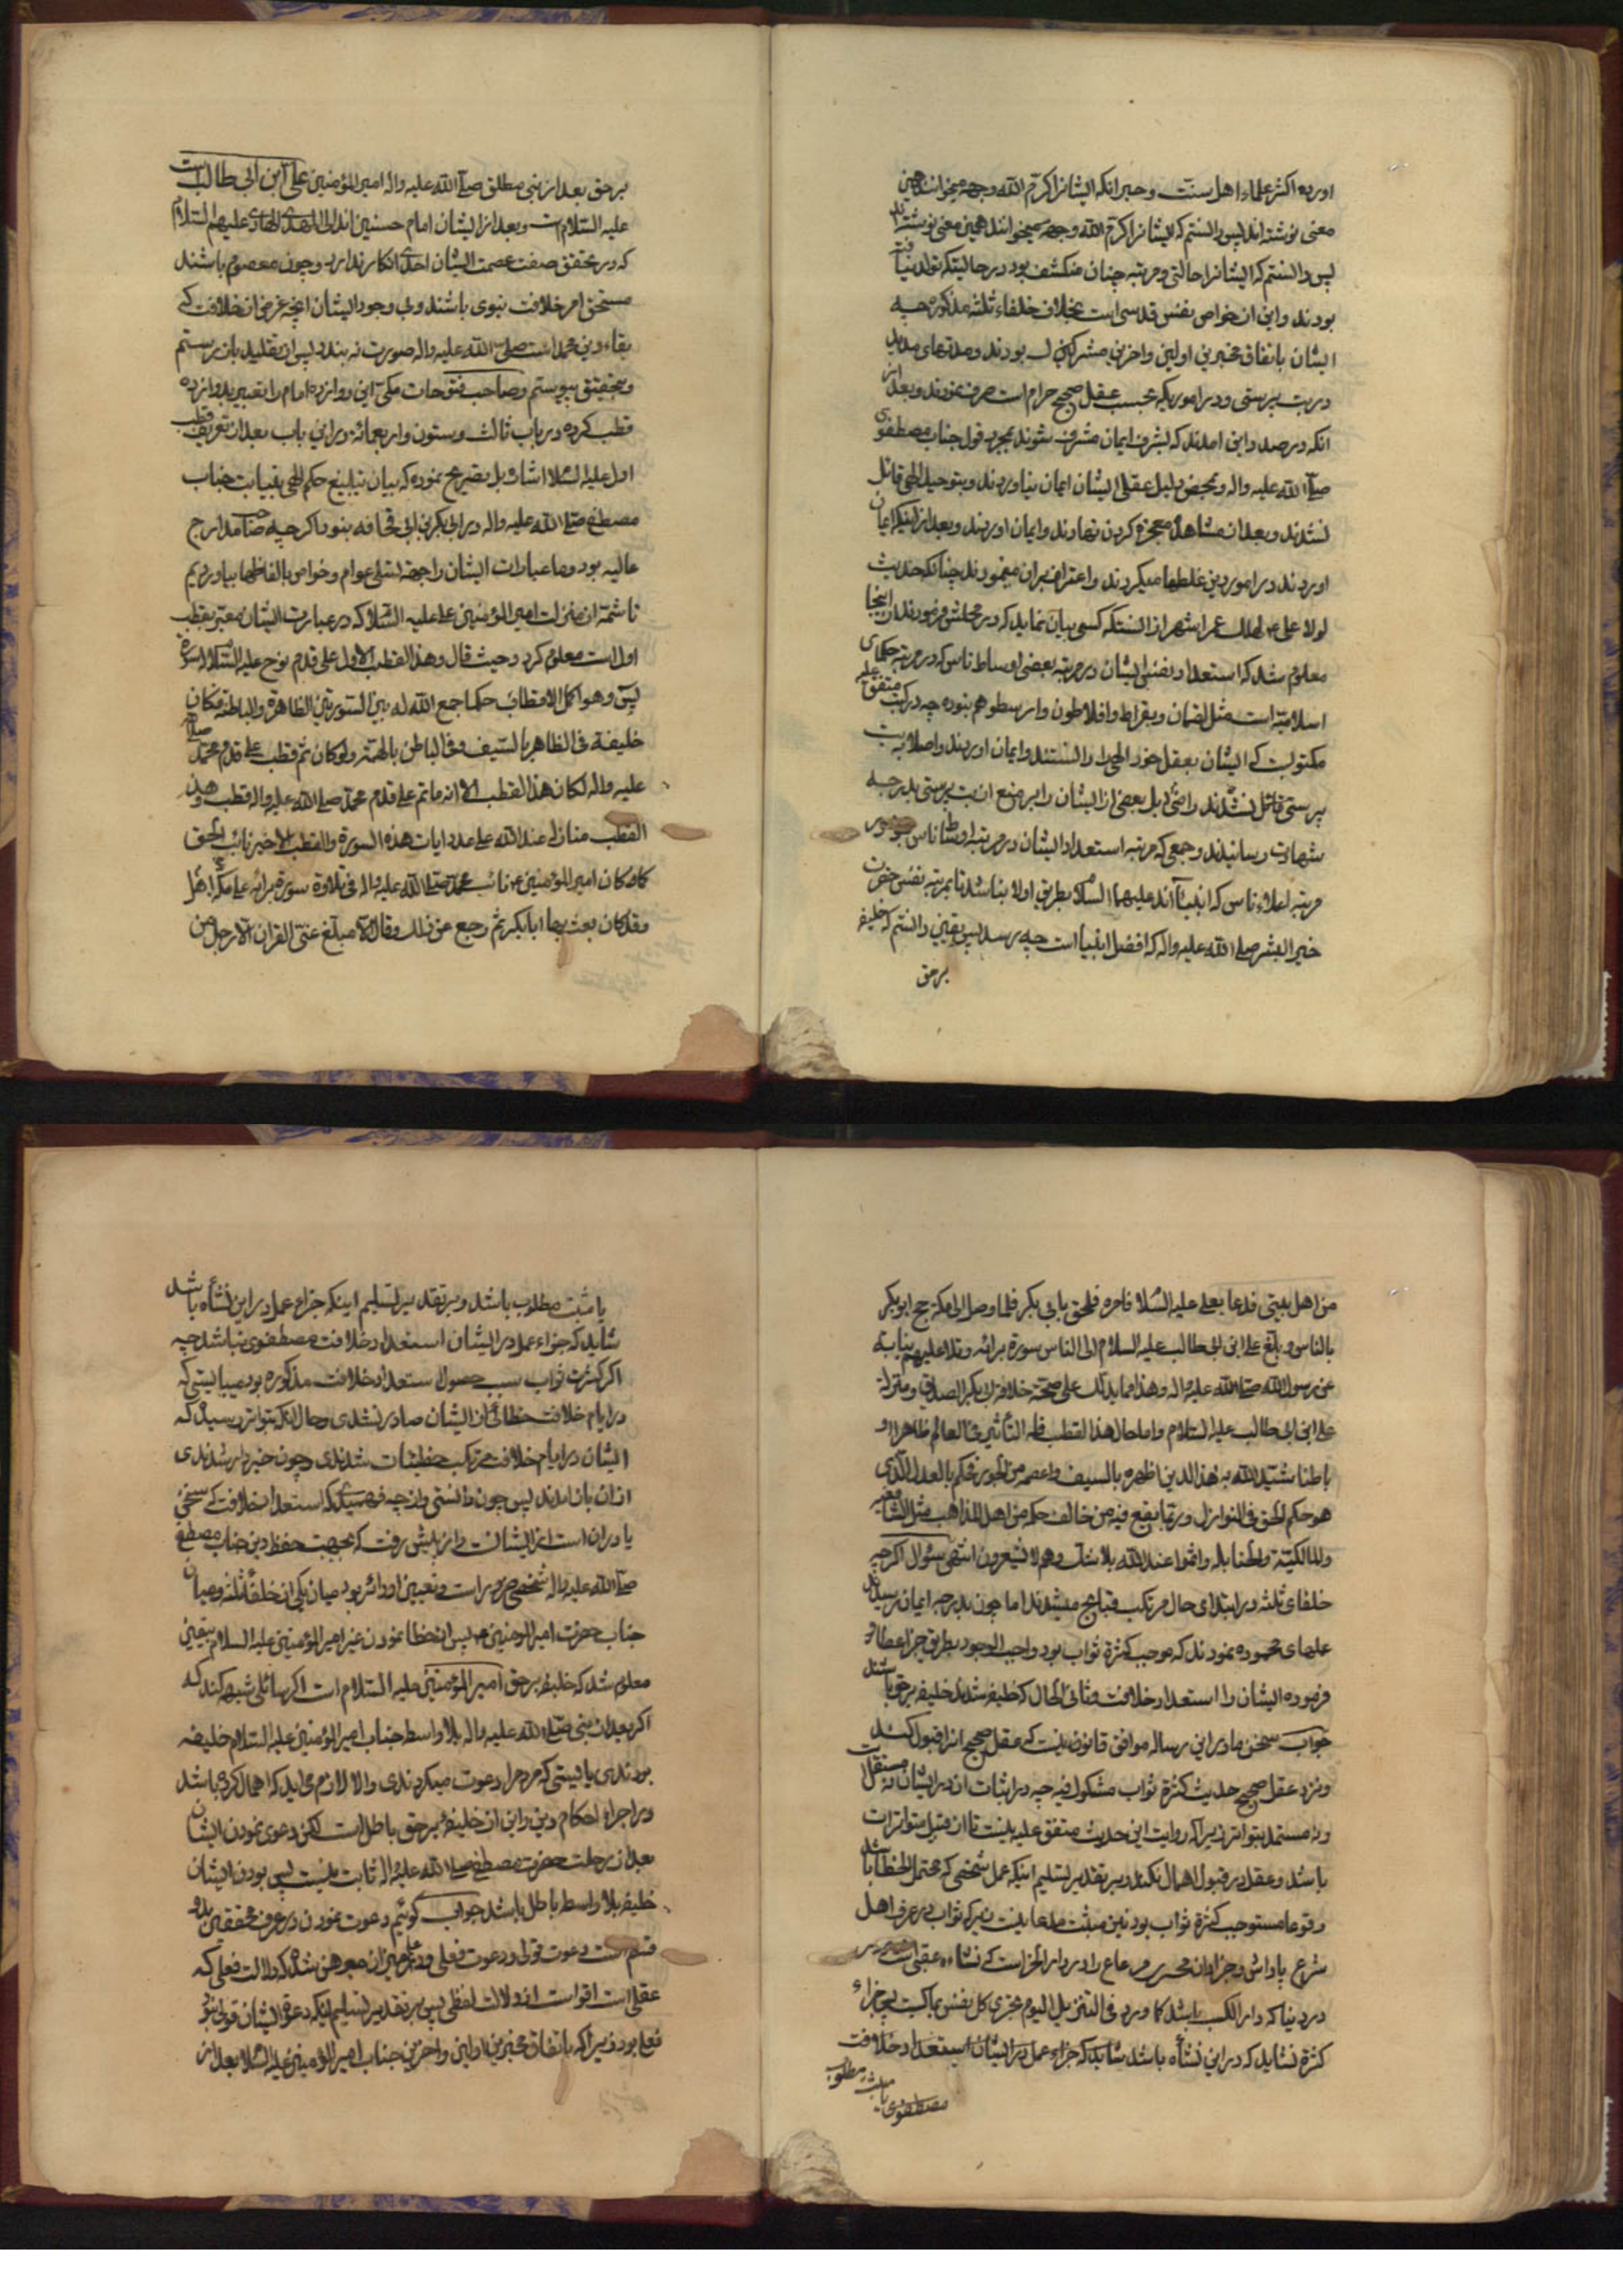 اورده اکثر علماء اهل سنت وجه انکه ایشانرا کرّم الله وجهه میخوانند همین
معنی نوشته اند پس دانستم که ایشانرا کرّم الله وجهه میخوانند همین معنی نوشته اند
پس دانستم که ایشانرا حالتی و مرتبه چنان منکشف بود در حالیتکه تولد نیافته
بودند و این از خواص نفس قدسی است بخلاف خلفاء ثلثه مذکوره چه
ایشان باتفاق مخبرین اولین و اخرین مشرکین بودند و مدتهای مدید
در بت پرستی و در اموریکه بحسب عقل صحیح حرام است صرف نمودند و بعد از
انکه در صدد این امدند که بشرف ایمان مشرف شوند بمجرد قول جناب مصطفوی
صلّی الله علیه واله و بمحض دلیل عقلی ایشان ایمان نیاوردند و بتوحید الهی قائل
نشدند و بعد از مشاهده معجزه کردن نهادند و ایمان اوردند و بعد از اینکه ایمان
اوردند در امور دین غلطها میکردند و اعتراف بران مینمودند چنانکه حدیث
لولا علی لهلک عمر اشهر از انستکه کسی بیان نماید که در محلش فرمودند از اینجا
معلوم شد که استعداد نفس ایشان در مرتبه بعضی اوساط ناس که در مرتبه حکمای
اسلامیه است مثل لقمان و بقراط و افلاطون و ارسطو هم نبوده چه در کتب متفق علیه
مکتوبست که ایشان بعقل خود الهی را دانستند و ایمان اوردند و اصلا به بت
پرستی قائل نشدند و راضی بل بعضی از ایشان را بر منع از بت پرستی بدرجه
شهادت رسانیدند و جمعی که مرتبه استعداد ایشان در مرتبه اوساط ناس نبود در
مرتبه اعلاء ناس که انبیااند علیهما السلام بطریق اولا نباشد تا بمرتبه نفس حضرت
خیر البشر صلی الله علیه واله که افضل انبیا است چه رسد پس یقین دانستم که خلیفه
برحق
برحق بعد از نبی مطلق صلّی الله علیه واله امیر المؤمنین علی ابن ابی طالب است
علیه السلام و بعد از ایشان امام حسنین اند الی المهدی الهادی علیهم السلام
که در تحقق صفت عصمت ایشان احدی انکار ندارد و چون معصوم باشند
مستحق امر خلافت نبوی باشند و بی وجود ایشان انچه غرض از خلافت که
بقاء دین محمد است صلی الله علیه واله صورت نه بندد پس از تقلید باز رستم
و بتحقیق پیوستم و صاحب فتوحات مکی این دوازده امام را تعبیر بدوازده
قطب کرده در باب ثالث و ستون و اربعمائه و در این باب بعد از تعریف قطب
اول علیه السلام اشاره بل تصریح نموده که بیان تبلیغ حکم الهی بنیابت جناب
مصطفی صلی الله علیه واله در ابی بکر بن ابی قحافه بنود اکرچه صاحب مدارج
عالیه بود و ما عبارات ایشان را جهه تسلی عوام و خواص بالفاظها بیاوردیم
تا شمّه از منزلت امیر المؤمنین علی علیه السّلام که در عبارت ایشان معبّر بقطب
اول است معلوم کرد و حیث قال و هذا القطب الاول علی قدم نوح علیه السلام سوره
یس و هو اکمل الاقطاب حکما جمع الله له بین السورتین الظاهرة و الباطنة فکان
خلیفة فی الظاهر بالسیف و فی الباطن بالهمّة و لو کان ثمّ قطب علی قدم محمد صلی الله
علیه واله لکان هذا القطب الا انه ماتم علی قدم محمد صلی الله علیه واله قطب و هذ
القطب منازله عند الله علی عدد ایات هذه السورة و القطب الاخیر نائب الحق
کما کان امیر المؤمنین نائب محمد صلی الله علیه واله فی تلاوة سورة برائه علی مکه اهل
و قد کان بعث بها ابابکر ثم رجع عن ذلک و قال لا مبلّغ عنّی القران الّا رجل من
من اهل بیتی فدعا بعلی علیه السّلام فامره فلحق بابی بکر فلما وصل الی مکة حج ابو بکر
بالناس و بلّغ علی ابن ابی طالب علیه السلام الی الناس سورة برائه و تلا علیهم نیابة
عن رسول الله صلی الله علیه واله و هذا مما یدلک علی صحّة خلافة ابی بکر الصدیق و منزلة
علی ابن ابی طالب علیه السّلام و اما حال هذا القطب فله التأثیر فی العالم ظاهرا و
باطنا شیّد الله به هذا الدین اظهره بالسیف و اعصمه من الجور فحکم بالعدل الّذی
هو حکم الحق فی النوازل و ربّما یقع فیه من خالف حکمه من اهل المذاهب مثل الشافعیّه
و المالکیّة و الحنابله و انتموا عند الله بلا شک و هم لا یشعرون انتهی سؤال اکرچه
خلفای ثلثه در ابتدای حال مرتکب قبایح میشدند اما چون بدرجه ایمان رسیدند
علمهای محموده نمودند که موجب کثرة ثواب بود واجب الوجود بطریق جزا عطا
فرموده ایشان را استعداد خلافت و ثانی الحال که خلیفه شدند خلیفه برحق باشند
جواب سخن ما در این رساله موافق قانونیست که عقل صحیح انرا قبول کند
و نزد عقل صحیح حدیث کثرة ثواب مشکوک فیه چه در اثبات ان در ایشان نه مستقل است
و نه مستمد بتواتر زیراکه روایت این حدیث متفق علیه نیست تا از قبیل متواترات
باشد و عقل در قبول اهمال نکند و بر تقدیر تسلیم اینکه عمل شخصی که محتمل الخطا باشد
وقوعا مستوجب کثرة ثواب بود نیز مثبت مدعا نیست زیراکه ثواب در عرف اهل
شرع پاداش و جزا و ان را در دار الجزاست که نشاءه عقبی است نه در
در دنیا که دار الکسب باشد کما ورد فی التنزیل الیوم تجزی کل نفس بما کسبت پس جزاء
کثرة نشاید که در این نشأه باشد شاید که جزاء عمل در ایشان استعداد خلافت
مصطفوی یا مثبت مطلوب
یا مثبت مطلوب باشد و بر تقدیر تسلیم اینکه جزاء عمل در این نشأه باشد
شاید که جزاء عمل در ایشان استعداد خلافت مصطفوی نباشد چه
اکر کثرت ثواب سبب حصول ستعداد خلافت مذکوره بود میبایستی که
در ایام خلافت خطائی از ایشان صادر نشدی و حال انکه بتواتر رسیده که
ایشان در ایام خلافت مرتکب خطیئات شدندی و چون خبردار شدندی
از ان باز امدند پس چون دانستی و از چه فهمیدی که استعداد خلافت که سخن
یا در ان است از ایشان است و از پیش رفت که بجهت حفظ دین جناب مصطفی
صلّی الله علیه واله شخصی ضرور است و تعیین او دائر بود میان یکی از خلفا ثلثه و میان
جناب حضرت امیر المومنین پس از خطا نمودن غیر امیر المؤمنین علیه السلام بیقین
معلوم شد که خلیفه برحق امیر المؤمنین علیه السّلام است اکر سائلی شبهه کند که
اکر بعد از نبی صلی الله علیه واله بلا واسطه جناب امیر المؤمنین علیه السلام خلیفه
بودندی بایستی که مردم را دعوت میکردندی و الا لازم می اید که اهمال کرده باشد
در اجراء احکام دین و این از خلیفه برحق باطل است لکن دعوی نمودن ایشان
بعد از رحلت حضرت مصطفی صلی الله علیه واله ثابت نیست پس بودن ایشان
خلیفه بلا واسطه باطل باشد جواب کوئیم دعوت نمودن در عرف محققین بدو
قسم است دعوت قولی و دعوت فعلی و در علم میزان مبرهن شده که دلالت فعلی که
عقلی است اقوا است از دلالت لفظی پس بر تقدیر تسلیم اینکه دعوة ایشان قولی نبود
فعلی بود زیراکه باتفاق مخبرین اولین و اخرین جناب امیر المؤمنین علیه السّلام بعد از